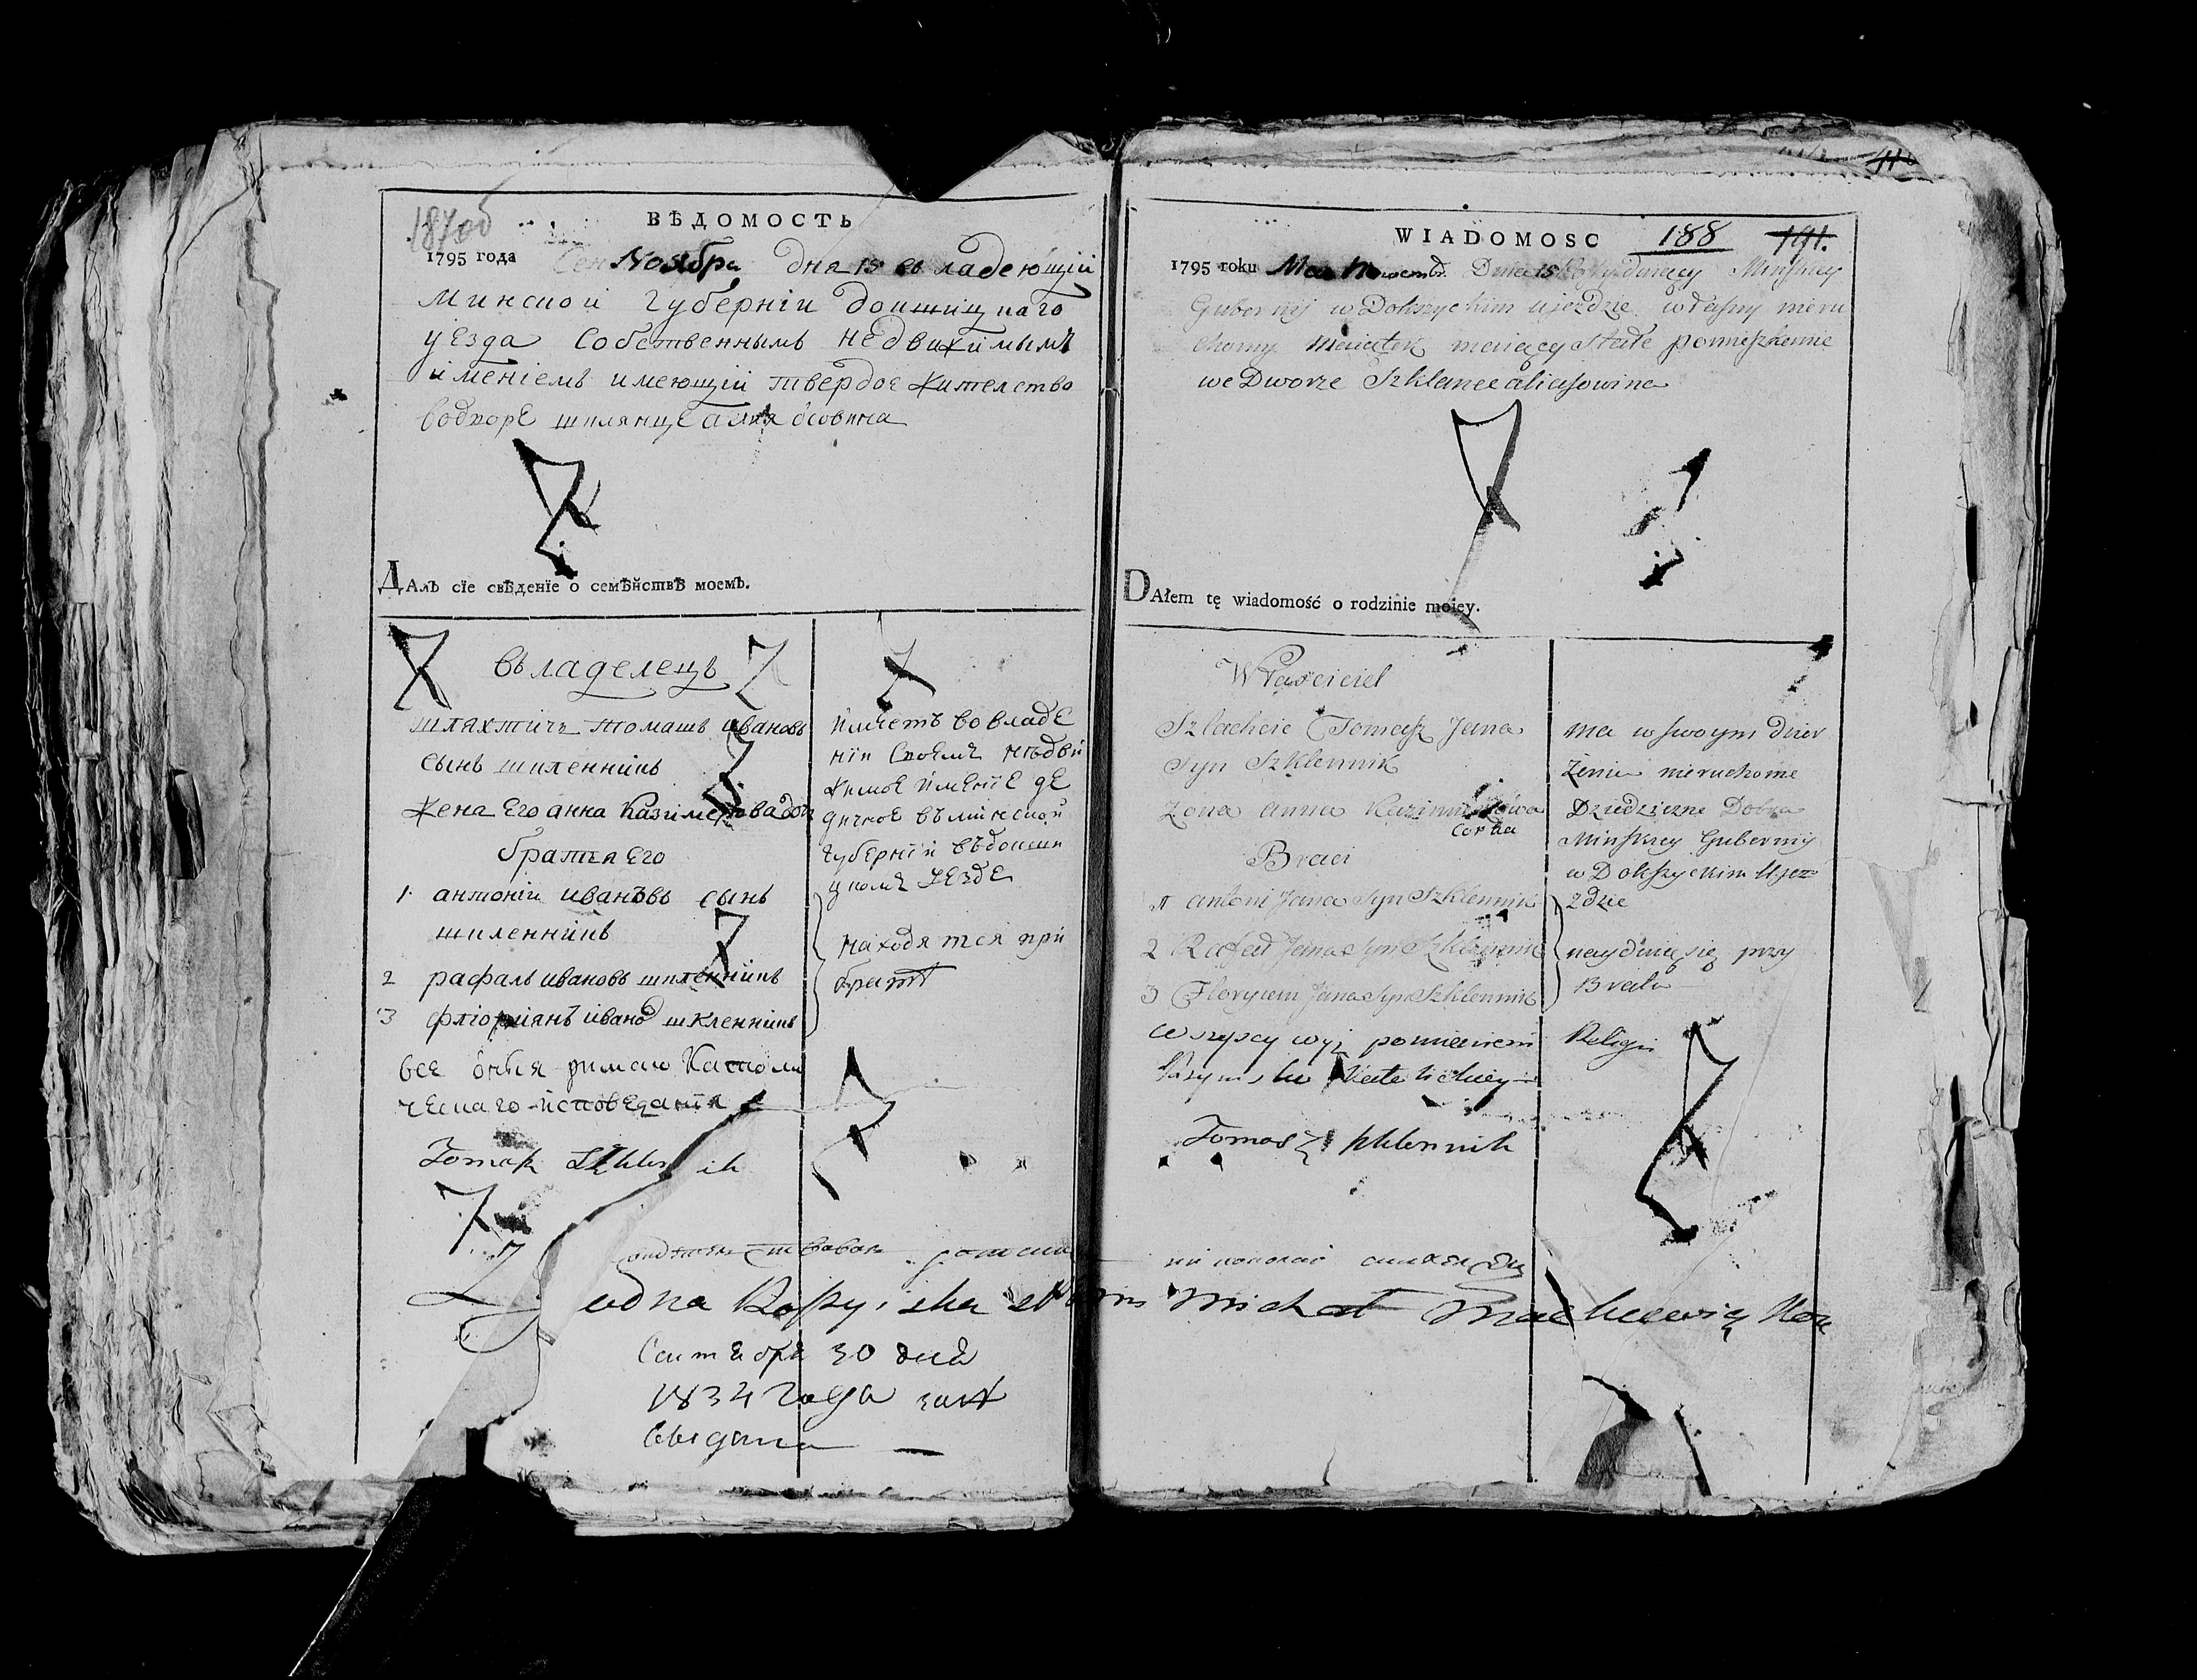 187об
ВѢДОМОСТЬ
1795 года Ноября дня 15 владеющій
Минской губерніи докшицкаго
уезда собственнымъ недвижимымъ
именіемъ имеющій твердое жителство
водворе шклянце осовина
ДАлъ сїе свѣденїе о семѣйствѣ моемъ.
въладелецъ
шляхтичъ томашъ ивановъ
сынъ шкленникъ
жена его анна казимерова доч
братья его
1 антоніи ивановъ сынъ
шкленникъ
2 рафалъ ивановъ шкленникъ
3 флоріянъ иванов шкленникъ
все оныя римско католи
ческаго исповеданія
имеетъ во владе
ніи своемъ недви
жимое именіе де
дичное въ минской
губерніи въ докши
цкомъ уезде
находятся при
брате
Tomasz
Сентебра 30 дня
1834 года
WIADOMOSC 188 191.
1795 roku Dnia 15 Minskiey
Gubernij w Dokszyckim ujezdzie własny nieru
chomy Maiątek maiący stałe pomieszkanie
we Dworze Szklance
DAłem tę wiadomość o rodzinie moiey.
Właściciel
Szlachcic Tomasz Jana
Syn Szklennik
Zona Anna Kazimierzowa
Corka
Braci
1 Antoni Jana Syn Szklennik
2 Rafał Jana Syn Szklennik
3 Floryan Jana Syn Szklennik
Wszyscy wyż pomienieni
Rzymsko Katolickiey
ma w swoym dzier
żeniu nieruchome
Dziedziczne Dobra
Minskiey Gubernij
w Dokszyckim Ujez
zdzie
nayduią się przy
Bratu
Religii
Tomasz Szklennik
Michał Mackiewicz